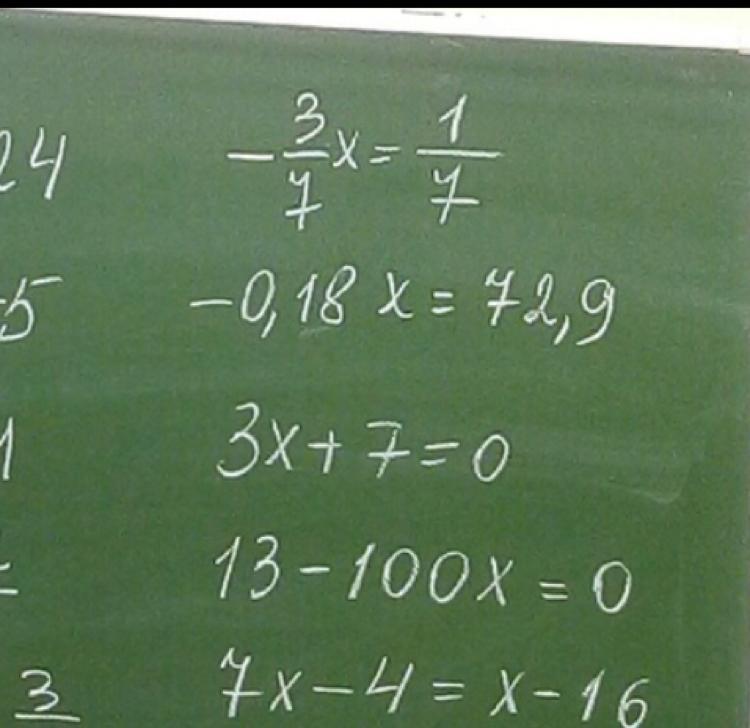 24 -3/7x = 1/7
-5 -0,18x = 72,9
1 3x + 7 = 0
13 - 100x = 0
3 7x - 4 = x - 16